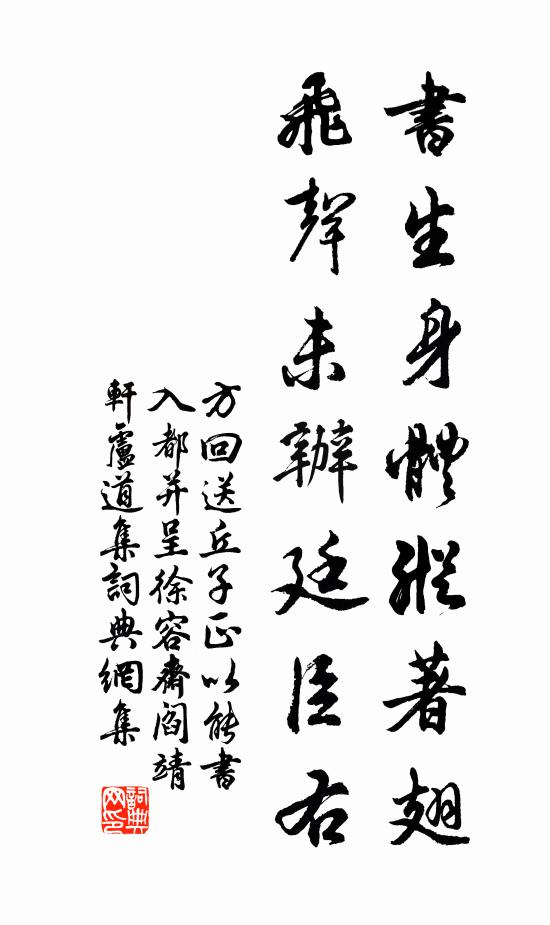 書生身體縱著翅
飛聲未辦廷臣右
方回送丘子正以能書
入都并呈徐容齋閻靖
軒盧道集詞典網集
詞典网印